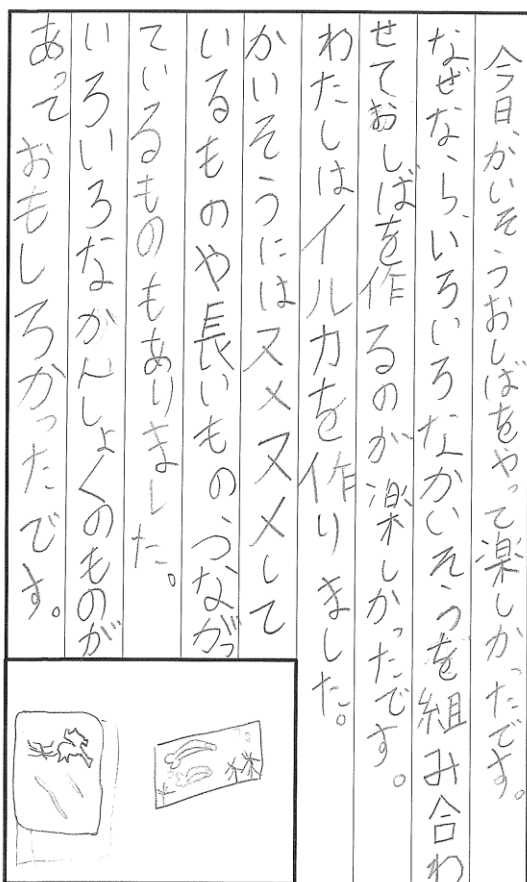 今日、かいそうおしばをやって楽しかったです。
なぜなら、いろいろなかいそうを組み合わ
せておしばを作るのが楽しかったです。
わたしはイルカを作りました。
かいそうにはヌメヌメして
いるものや長いもの、つながっ
ているものもありました。
いろいろなかんしょくのものが
あっておもしろかったです。